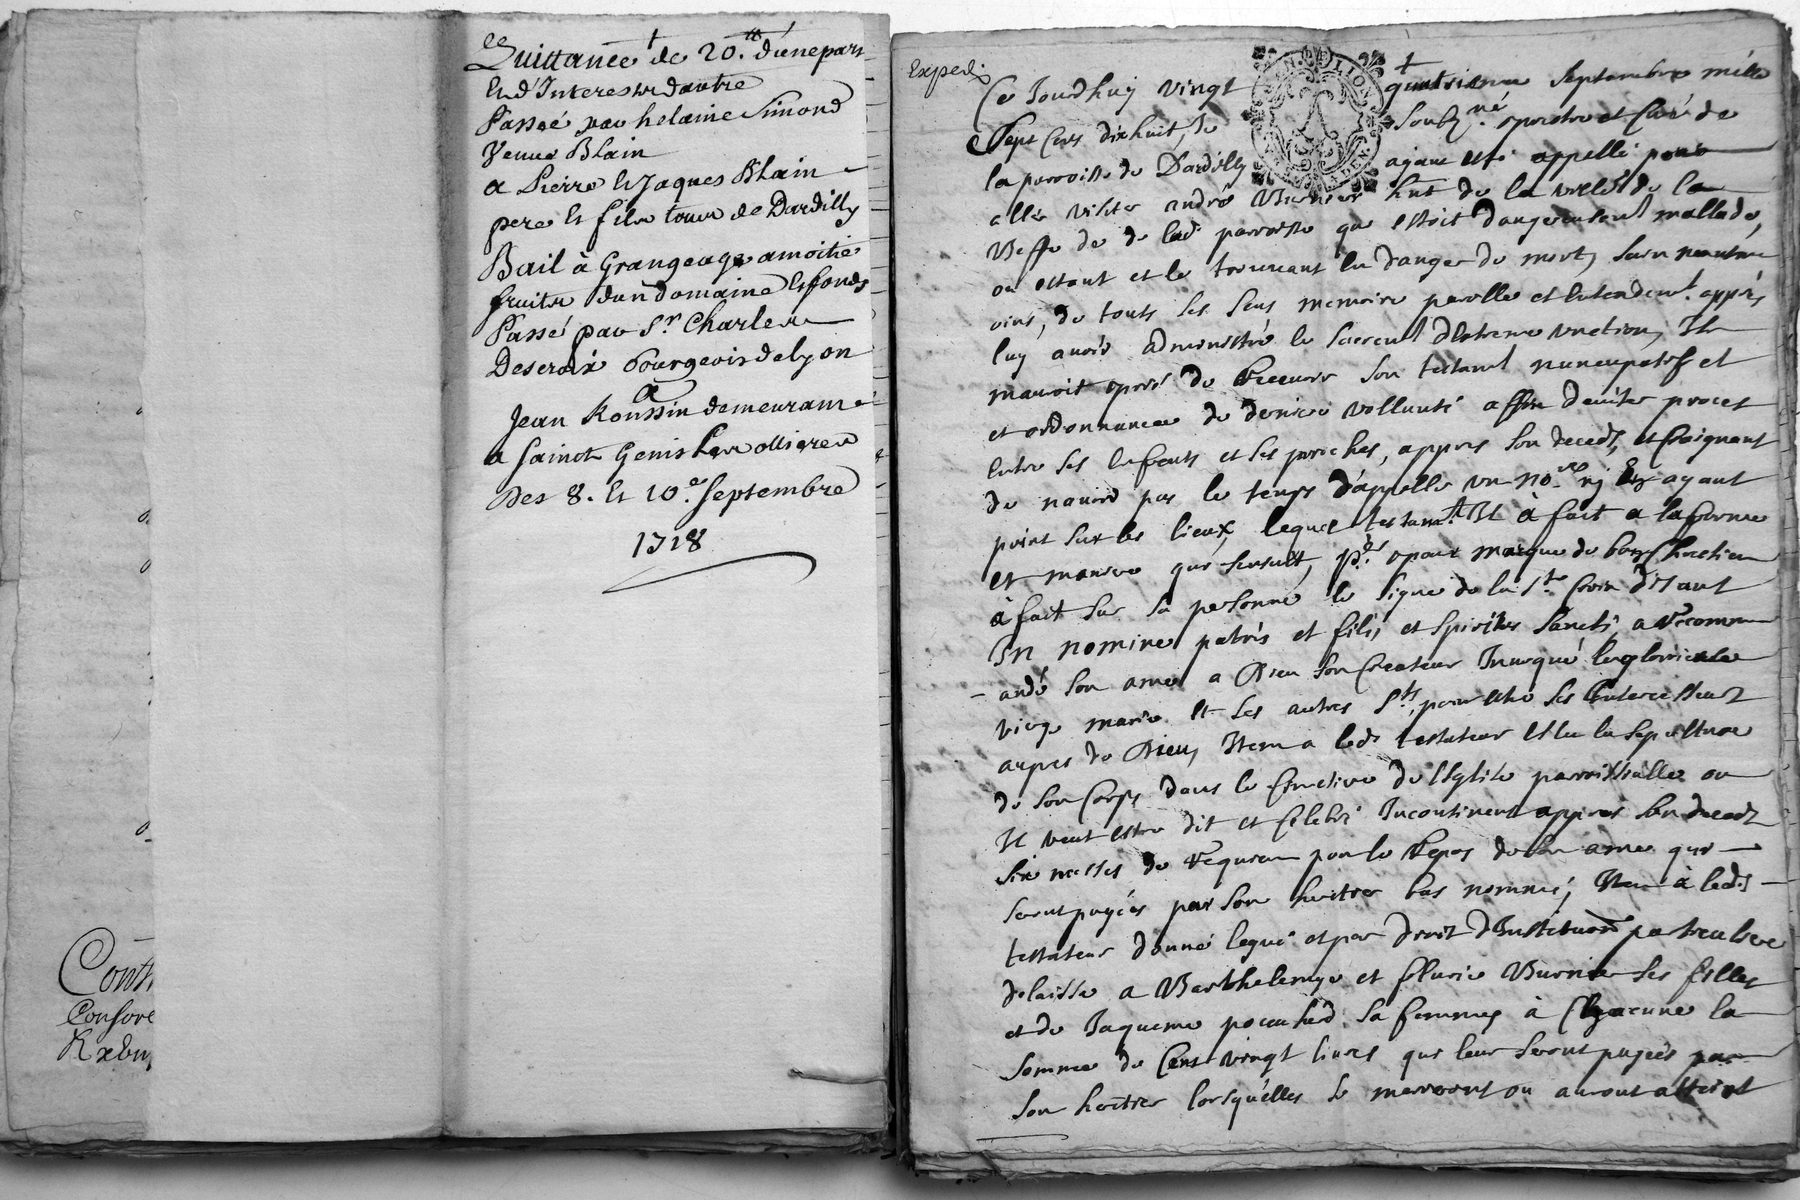 Quittance de 20.tt d'une part
Et d'Interests d'autre
Passée par helaine Simond
Veuve Blain
a Pierre Et Jaques Blain
pere Et fils tous de Dardilly
Bail à Grangeage a moitié
fruits d'un domaine Et fonds
Passé par Sr. Charles
Descroix bourgeois de lyon
a
Jean Roussin demeurant
a Sainct Genis les ollieres
Des 8. Et 10e. Septembre
1718
Cont
Consore
Exped.
Ce Jourdhuy vingt quatrieme Septembre mille
Sept Cens dixhuit, Je Soubz.né prestre et Curé de
la parroisse de Dardilly ayant esté appellé pour
aller visiter andré Burnier de la
de de lad. parroisse qui estoit dangereusemt mallade,
ou estant et le trouvant en danger de mort, sain neantm
oins, de touts ses sens memoire parolle et Entendemt. apprés
luy avoir administré le Sacremt d'Extreme onction, Il
mauroit prié de Recevoir son testamt nuncupatif et
et ordonnance de derniere vollonté affin d'eviter proces
Entre ses Enfents et ses proches, appres son deceds, et Craignant
de navoir pas le temps d'appeller un no.re ny En ayant
point sur les lieux, lequel testamt. Il à fait a la forme
et maniere qui sensuit, p.r pour marque de bon Chretien
à fait sur sa personne le signe de la Ste Croix disant
In nomine patris et filij et Spiritus Sancti a Recomm
- andé son ame a Dieu son Createur Invoqué la glorieuse
vierge marie et les autres Sts. pour estre ses Intercesseurs
aupres de Dieu, Item a led. testateur Eslu la sepulture
de son Corps dans le Cimetiere de l'Eglise parroissialle ou
Il veut estre dit et Celebré Incontinent appres son deceds
Six messes de Requiem pour le Repos de son ame qui
seront payées par son heritier bas nommé, Item à led.
testateur donné legué et par droit d'Institution particuliere
delaissé a Barthelemye et fleurie Burnier ses filles
et de Jaqueme sa femme, à Chacune la
somme de Cent vingt livres qui leur seront payées par
son heritier lorsqu'elles se marieront ou auront atteint